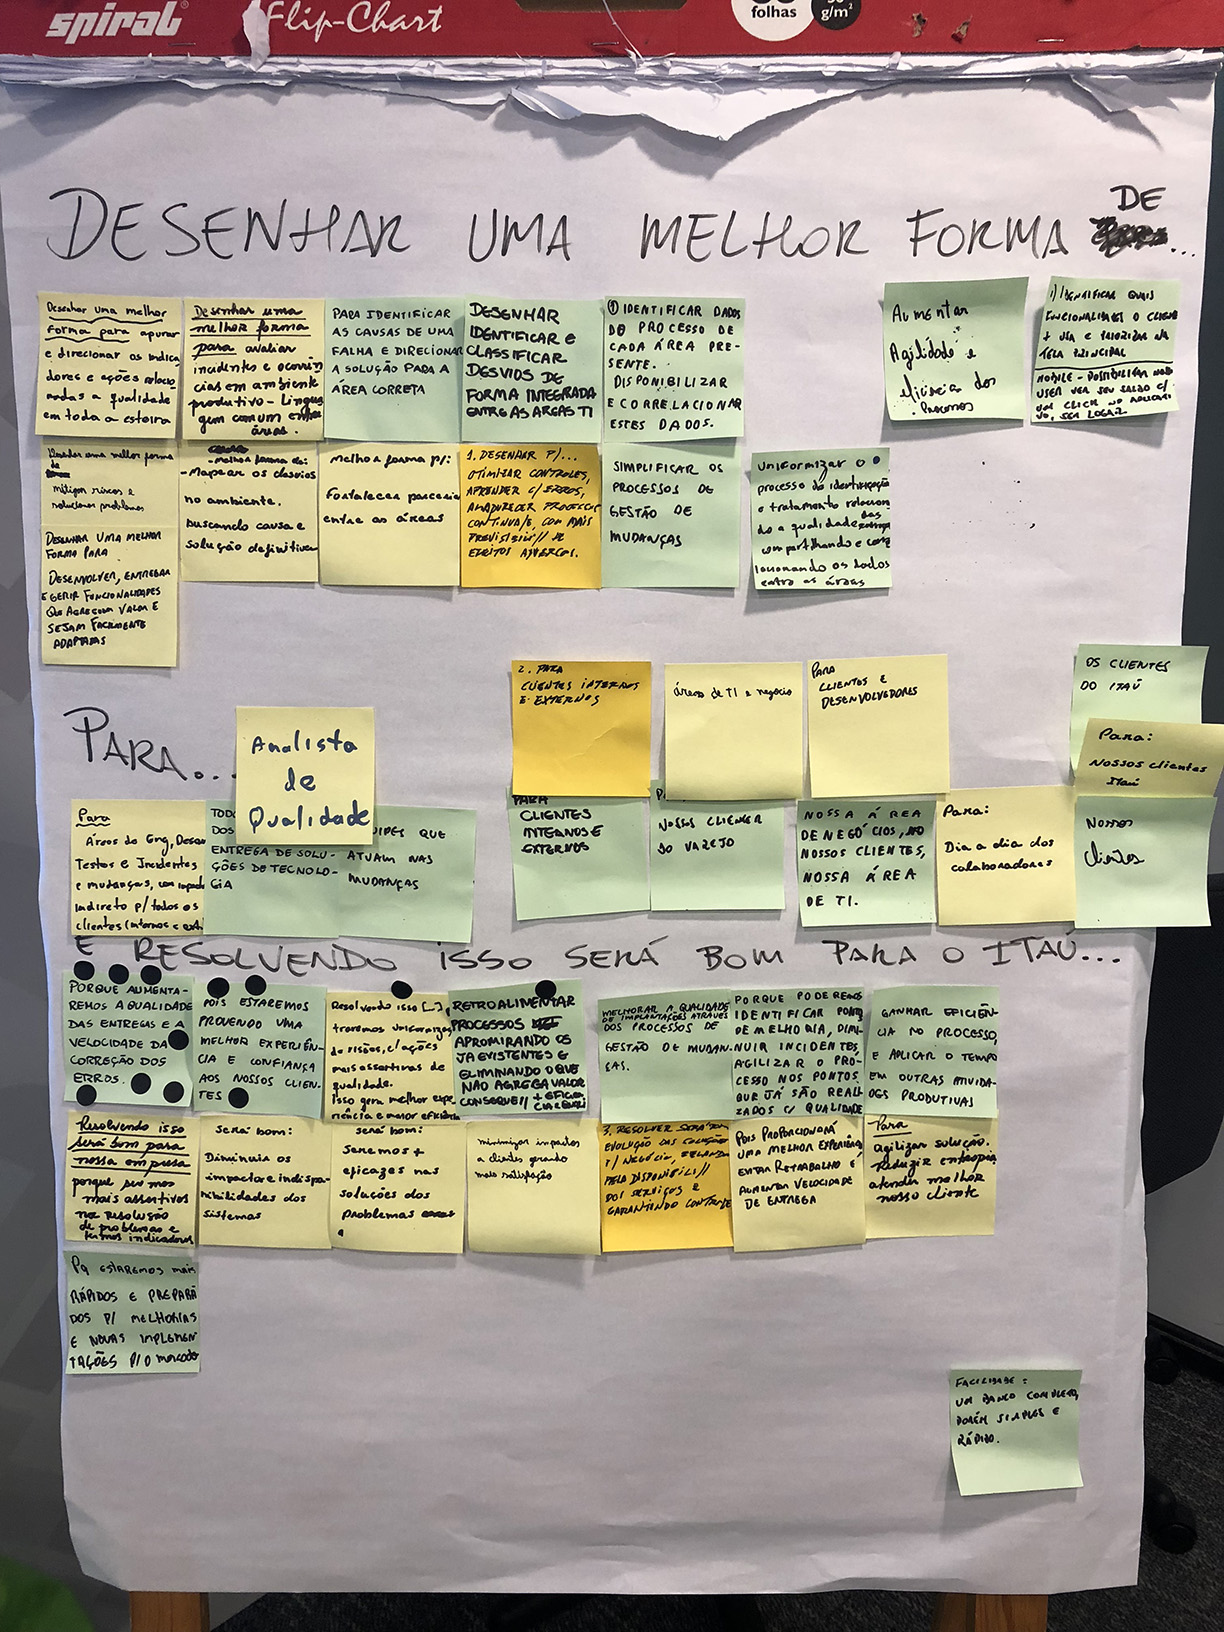 spiral Flip-Chart
folhas
g/m²
DESENHAR UMA MELHOR FORMA DE ...
Desenhar uma melhor
forma para apurar
e direcionar os indica
dores e ações relacio
nadas a qualidade
em toda a esteira
Desenhar uma
melhor forma
para avaliar
incidentes e ocorrên
cias em ambiente
produtivo - Lingua
gem comum entre
áreas.
PARA IDENTIFICAR
AS CAUSAS DE UMA
FALHA E DIRECIONAR
A SOLUÇÃO PARA A
ÁREA CORRETA
DESENHAR
IDENTIFICAR E
CLASSIFICAR
DESVIOS DE
FORMA INTEGRADA
ENTRE AS AREAS TI
① IDENTIFICAR DADOS
DO PROCESSO DE
CADA ÁREA PRE-
SENTE.
DISPONIBILIZAR
E CORRELACIONAR
ESTES DADOS.
Aumentar
Agilidade e
eficiencia dos
Processos
1) IDENTIFICAR QUAIS
FUNCIONALIDADES O CLIENTE
+ USA E PRIORIZAR NA
TELA PRINCIPAL
MOBILE - POSSIBILITAR
USER VER SEU SALDO C/
UM CLICK NO APLICATI
VO, SEM LOGAR
uma melhor forma
de
mitigar riscos e
solucionar problemas
- Melhor forma de:
- Mapear os desvios
no ambiente.
buscando causa e
solução definitiva
Melhor forma p/:
Fortalecer parceria
entre as áreas
1. DESENHAR P/...
OTIMIZAR CONTROLES,
APRENDER C/ ERROS,
AMADURECER PROCESSO
CONTINUA/E, COM MAIS
PREVISIBILI// DE
EFEITOS ADVERSOS.
SIMPLIFICAR OS
PROCESSOS DE
GESTÃO DE
MUDANÇAS
Uniformizar o
processo de identificação
e tratamento relacion
do a qualidade das
compartilhando e
lacionando os dados
entre as áreas
DESENHAR UMA MELHOR
FORMA PARA
DESENVOLVER, ENTREGAR
E GERIR FUNCIONALIDADES
QUE AGREGUEM VALOR E
SEJAM FACILMENTE
ADAPTADAS
PARA...
Analista
de
Qualidade
2. PARA
CLIENTES INTERNOS
E EXTERNOS
áreas de TI e negócio
PARA
CLIENTES E
DESENVOLVEDORES
OS CLIENTES
DO ITAÚ
Para:
Nossos clientes
Itaú
Para
Áreas de Eng, Desen
Testes e Incidentes
e mudanças, com impacto
indireto p/ todos os
clientes (internos e ext
TODO
DOS
ENTREGA DE SOLU-
ÇÕES DE TECNOLO-
GIA
QUIPES QUE
ATUAM NAS
MUDANÇAS
PARA
CLIENTES
INTERNOS E
EXTERNOS
NOSSOS CLIENTES
DO VAREJO
NOSSA ÁREA
DE NEGÓCIOS,
NOSSOS CLIENTES,
NOSSA ÁREA
DE TI.
Para:
Dia a dia dos
colaboradores
Nossos
Clientes
E RESOLVENDO ISSO SERÁ BOM PARA O ITAÚ...
PORQUE AUMENTA-
REMOS A QUALIDADE
DAS ENTREGAS E A
VELOCIDADE DA
CORREÇÃO DOS
ERROS.
POIS ESTAREMOS
PROVENDO UMA
MELHOR EXPERIÊN-
CIA E CONFIANÇA
AOS NOSSOS CLIEN-
TES
Resolvendo isso [...]
teremos uniformização
de visões, c/ ações
mais assertivas de
qualidade.
Isso gera melhor expe
riência e maior eficiência
RETROALIMENTAR
PROCESSOS
APROMIRANDO OS
JA EXISTENTES E
ELIMINANDO O QUE
NÃO AGREGA VALOR
MELHORAR A QUALIDADE
DE IMPLANTAÇÕES ATRAVÉS
DOS PROCESSOS DE
GESTÃO DE MUDAN-
ÇAS.
PORQUE PODEREMOS
IDENTIFICAR PONTOS
DE MELHORIA, DIMI-
NUIR INCIDENTES,
AGILIZAR O PRO-
CESSO NOS PONTOS
QUE JÁ SÃO REALI-
ZADOS C/ QUALIDADE
GANHAR EFICIÊN-
CIA NO PROCESSO,
E APLICAR O TEMPO
EM OUTRAS ATIVIDA-
DES PRODUTIVAS
Resolvendo isso
será bom para
nossa empresa
porque seremos
mais assertivos
na resolução
de problemas e
termos indicadores
Será bom:
Diminuir os
impactos e indispo-
nibilidades dos
sistemas
Será bom:
Seremos +
eficazes nas
soluções dos
problemas
minimizar impactos
a clientes gerando
mais satisfação
3. RESOLVER SERÁ
EVOLUÇÃO DAS SOLUÇÕES
P/ NEGÓCIO, ZELANDO
PELA DISPONIBILI//
DOS SERVIÇOS E
GARANTINDO CONTROLE
POIS PROPORCIONARÁ
UMA MELHOR EXPERIÊNCIA
EVITAR RETRABALHO E
AUMENTAR VELOCIDADE
DE ENTREGA
Para
agilizar solução.
Reduzir entropia
atender melhor
nosso cliente
Pq ESTAREMOS MAIS
RÁPIDOS E PREPARA
DOS P/ MELHORIAS
E NOVAS IMPLEMEN
TAÇÕES P/ O mercado
FACILIDADE:
UM BANCO COMPLETO,
PORÉM SIMPLES E
RÁPIDO.